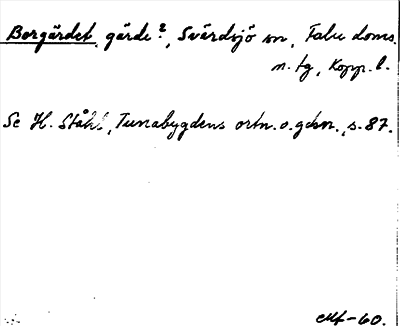 Borgärdet, gärde?, Svärdsjö sn, Falu doms.
n. tg, Kopp. l.
Se H. Ståhl, Tunabygdens ortn. o. gdsn., s. 87.
-60.